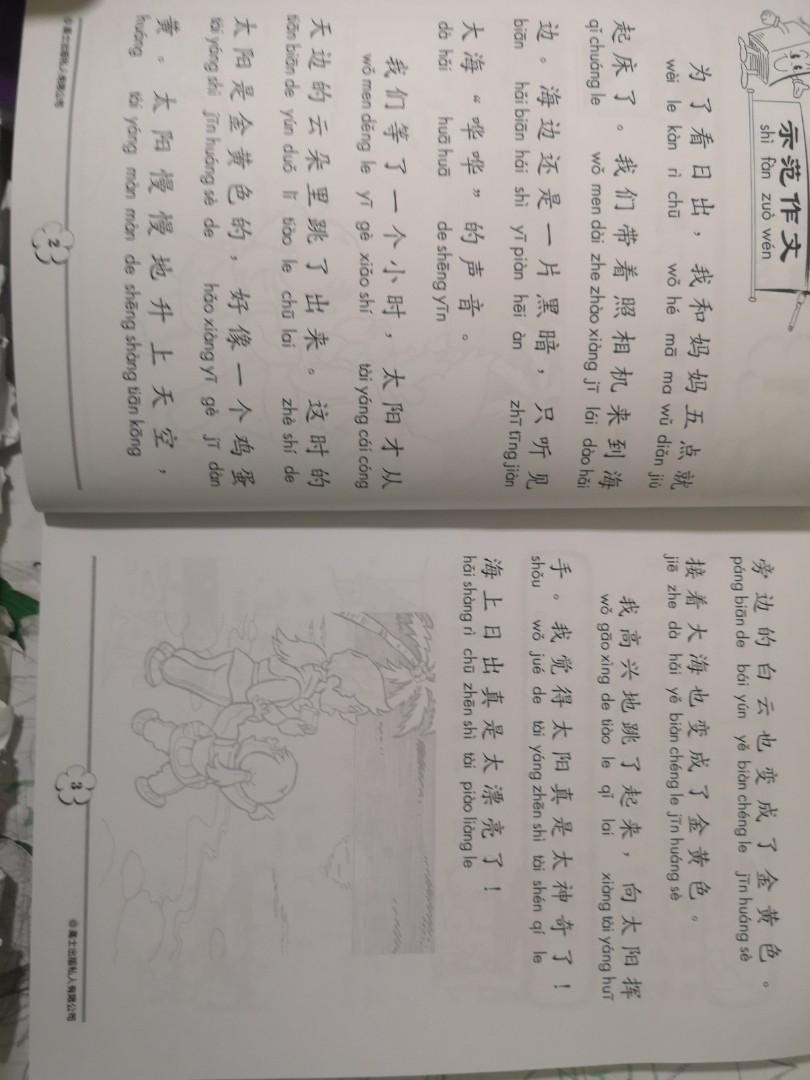 示范作文
shì fàn zuò wén
为了看日出，我和妈妈五点就
wèi le kàn rì chū wǒ hé mā ma wǔ diǎn jiù
起床了。我们带着照相机来到海
qǐ chuáng le wǒ men dài zhe zhào xiàng jī lái dào hǎi
边。海边还是一片黑暗，只听见
biān hǎi biān hái shì yī piàn hēi àn zhǐ tīng jiàn
大海“哗哗”的声音。
dà hǎi huā huā de shēng yīn
我们等了一个小时，太阳才从
wǒ men děng le yī gè xiǎo shí tài yáng cái cóng
天边的云朵里跳了出来。这时的
tiān biān de yún duǒ lǐ tiào le chū lai zhè shí de
太阳是金黄色的，好像一个鸡蛋
tài yáng shì jīn huáng sè de hǎo xiàng yī gè jī dàn
黄。太阳慢慢地升上天空，
huáng tài yáng màn màn de shēng shàng tiān kōng
2
©嘉士出版私人有限公司
旁边的白云也变成了金黄色。
páng biān de bái yún yě biàn chéng le jīn huáng sè
接着大海也变成了金黄色。
jiē zhe dà hǎi yě biàn chéng le jīn huáng sè
我高兴地跳了起来，向太阳挥
wǒ gāo xìng de tiào le qǐ lai xiàng tài yáng huī
手。我觉得太阳真是太神奇了！
shǒu wǒ jué de tài yáng zhēn shì tài shén qí le
海上日出真是太漂亮了！
hǎi shàng rì chū zhēn shì tài piào liàng le
3
©嘉士出版私人有限公司